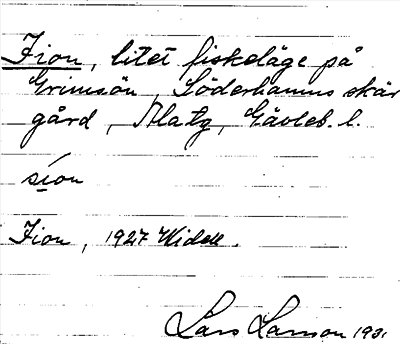 Zion, litet fiskeläge på
Grimsön, Söderhamns skär
gård, Gävleb. l.
síon
Zion, 1927 Widell.
Lars Larsson 1931